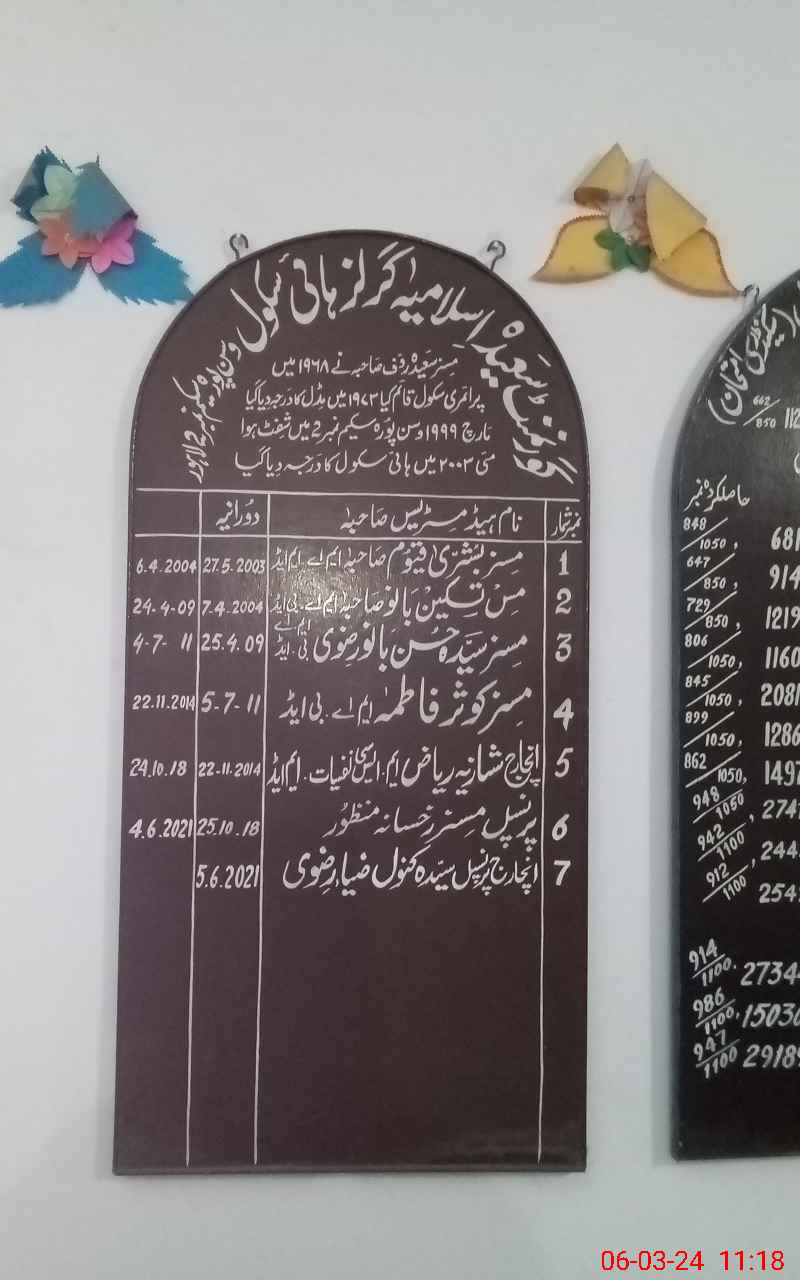 گورنمنٹ سعیدہ اسلامیہ گرلز ہائی سکول وسن پورہ سکیم نمبر 2 لاہور
مسز سعیدہ رؤف صاحبہ نے ۱۹۶۸ میں
پرائمری سکول قائم کیا ۱۹۷۳ میں مڈل کا درجہ دیا گیا
مارچ ۱۹۹۹ وسن پورہ سکیم نمبر 2 میں شفٹ ہوا
مئی ۲۰۰۳ میں ہائی سکول کا درجہ دیا گیا
نمبر شمار نام ہیڈ مسٹریس صاحبہ دورانیہ
1 مسز بشریٰ قیوم صاحبہ ایم اے ایم ایڈ 27.5.2003 6.4.2004
2 مس تسکین بانو صاحبہ ایم اے بی ایڈ 7.4.2004 24.4-09
3 مسز سیدہ حسن بانو رضوی ایم اے بی ایڈ 25.4.09 4-7-11
4 مسز کوثر فاطمہ ایم اے بی ایڈ 5-7-11 22.11.2014
5 انچارج شازیہ ریاض ایم.ایس سی نفسیات. ایم ایڈ 22-11.2014 24.10.18
6 پرنسپل مسز رخسانہ منظور 25.10.18 4.6.2021
7 انچارج پرنسپل سیدہ کنول ضیاء رضوی 5.6.2021
(سیکنڈری امتحان)
662/850
حاصلکردہ نمبر
848/1050, 681
647/850, 914
729/850, 1219
806/1050, 1160
845/1050, 2081
899/1050, 1286
862/1050, 1497
948/1050, 274
942/1100, 244
912/1100 254
914/1100. 2734
986/1100, 1503
947/1100 2918
06-03-24 11:18